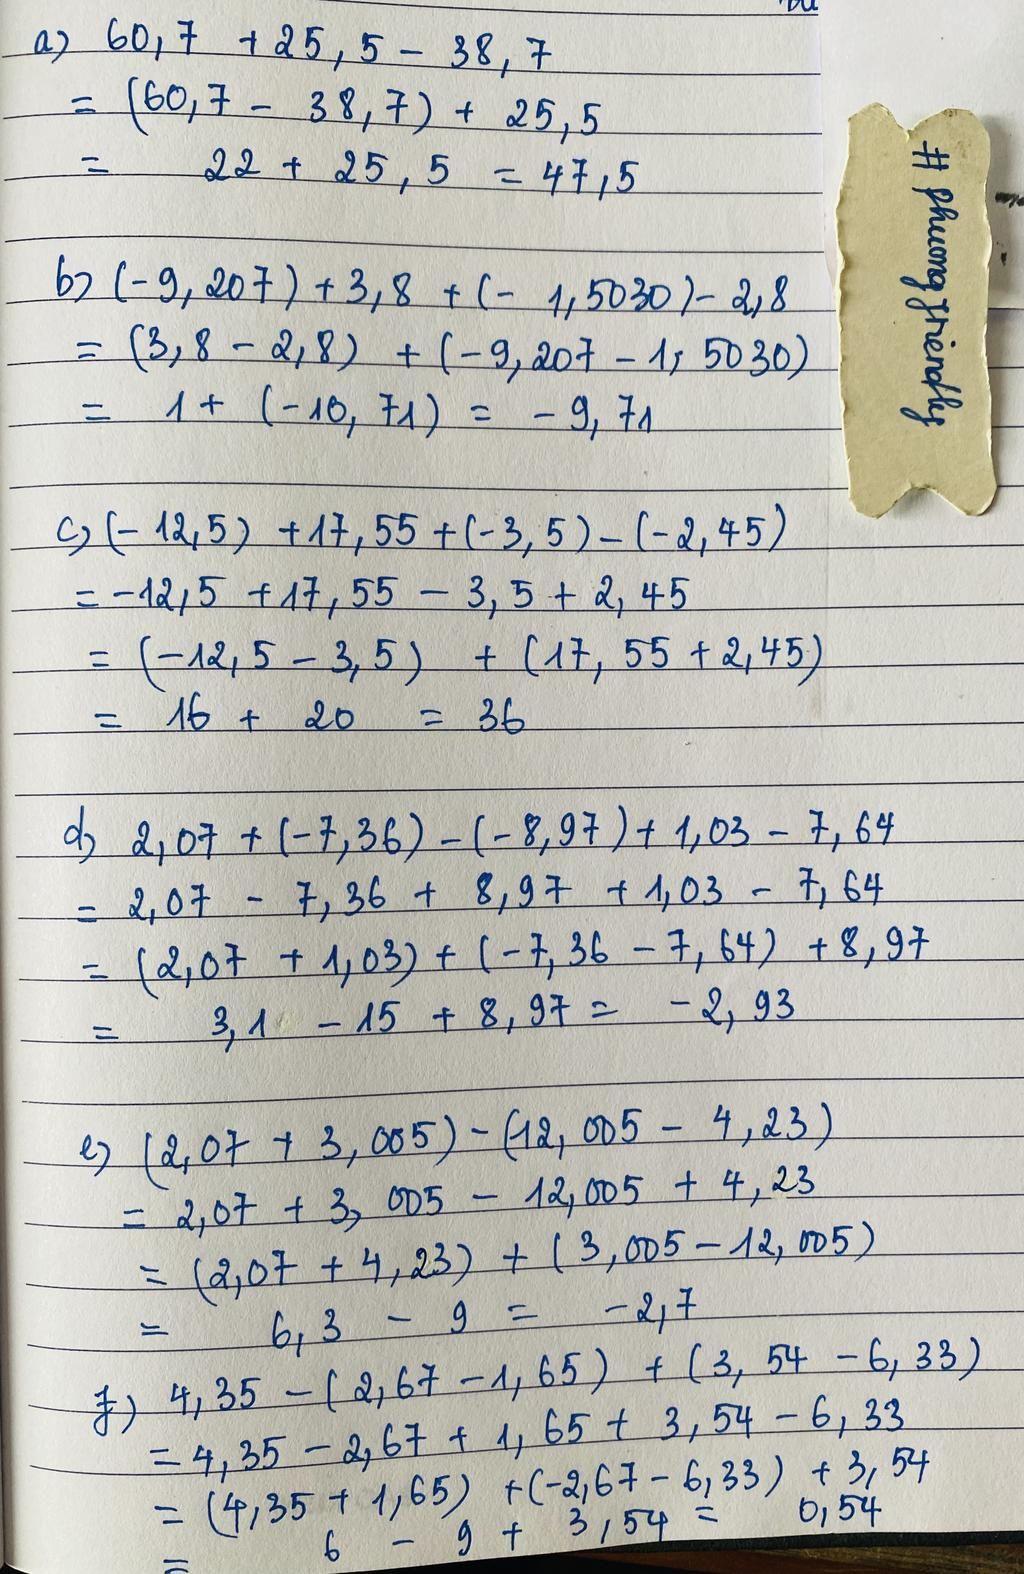 a) 60,7 + 25,5 - 38,7
= (60,7 - 38,7) + 25,5
= 22 + 25,5 = 47,5
# phuongfriendly
b) (-9,207) + 3,8 + (- 1,5030) - 2,8
= (3,8 - 2,8) + (-9,207 - 1,5030)
= 1 + (-10,71) = -9,71
c) (-12,5) + 17,55 + (-3,5) - (-2,45)
= -12,5 + 17,55 - 3,5 + 2,45
= (-12,5 - 3,5) + (17,55 + 2,45)
= 16 + 20 = 36
d) 2,07 + (-7,36) - (-8,97) + 1,03 - 7,64
= 2,07 - 7,36 + 8,97 + 1,03 - 7,64
= (2,07 + 1,03) + (-7,36 - 7,64) + 8,97
= 3,1 - 15 + 8,97 = -2,93
e) (2,07 + 3,005) - (12,005 - 4,23)
= 2,07 + 3,005 - 12,005 + 4,23
= (2,07 + 4,23) + (3,005 - 12,005)
= 6,3 - 9 = -2,7
f) 4,35 - (2,67 - 1,65) + (3,54 - 6,33)
= 4,35 - 2,67 + 1,65 + 3,54 - 6,33
= (4,35 + 1,65) + (-2,67 - 6,33) + 3,54
= 6 - 9 + 3,54 = 0,54